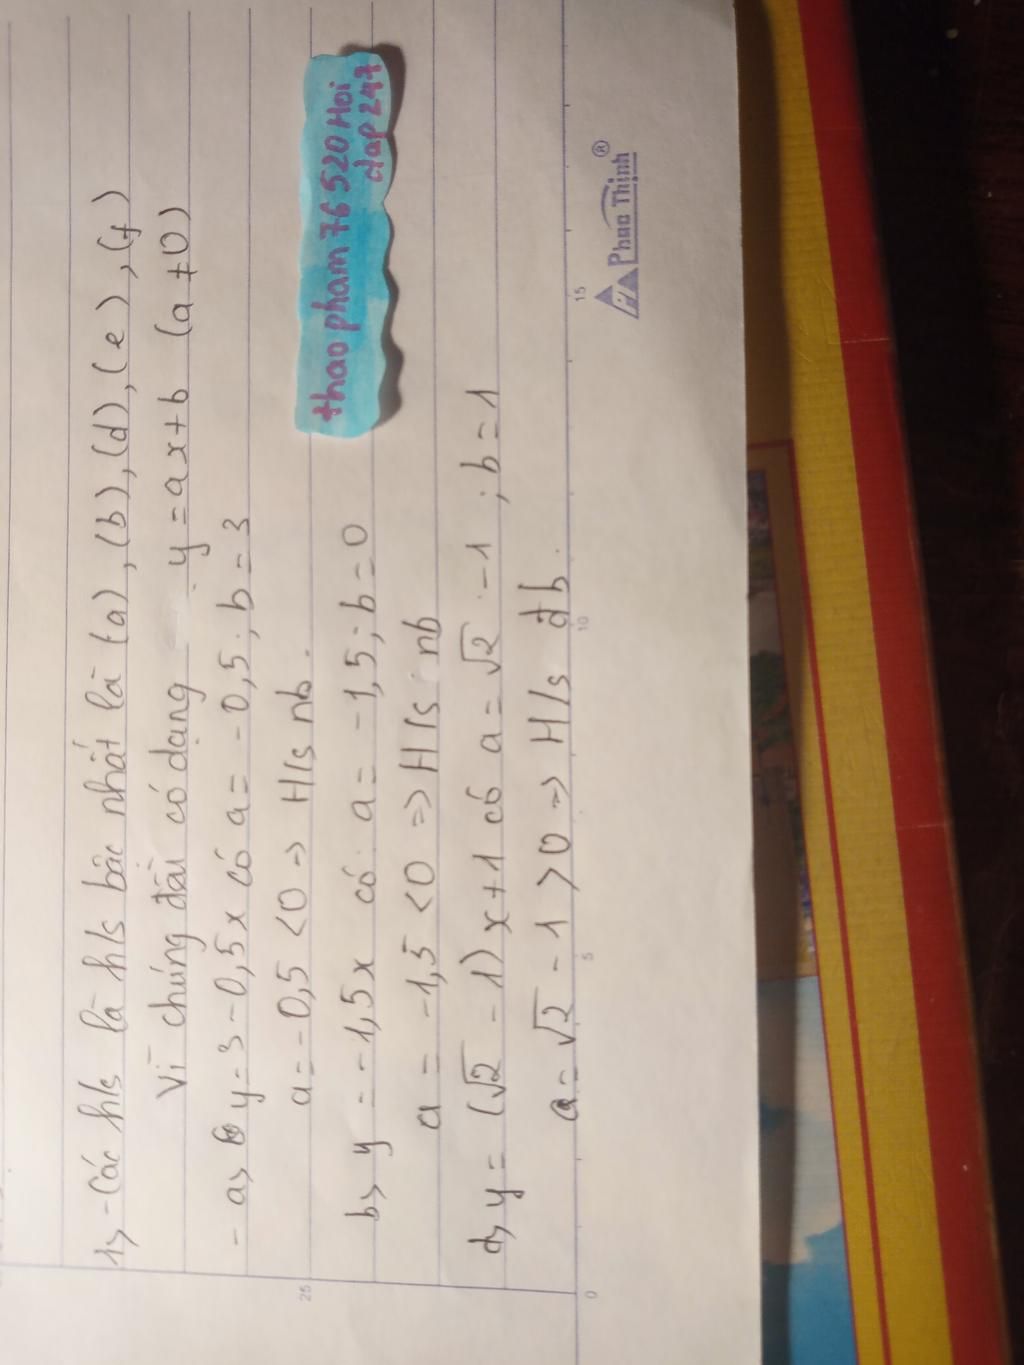 1> - Các h/s là h/s bậc nhất là (a), (b), (d), (e), (f)
Vì chúng đều có dạng y = ax + b (a ≠ 0)
- a> y = 3 - 0,5x có a = -0,5 ; b = 3
a = -0,5 < 0 => H/s nb.
b> y = -1,5x có a = -1,5 ; b = 0
a = -1,5 < 0 => H/s nb
d> y = (√2 - 1)x + 1 có a = √2 - 1 ; b = 1
a = √2 - 1 > 0 => H/s đb.
thaopham76520 Hoi
dap247
25
0 5 10 15
Phuc Thinh ®